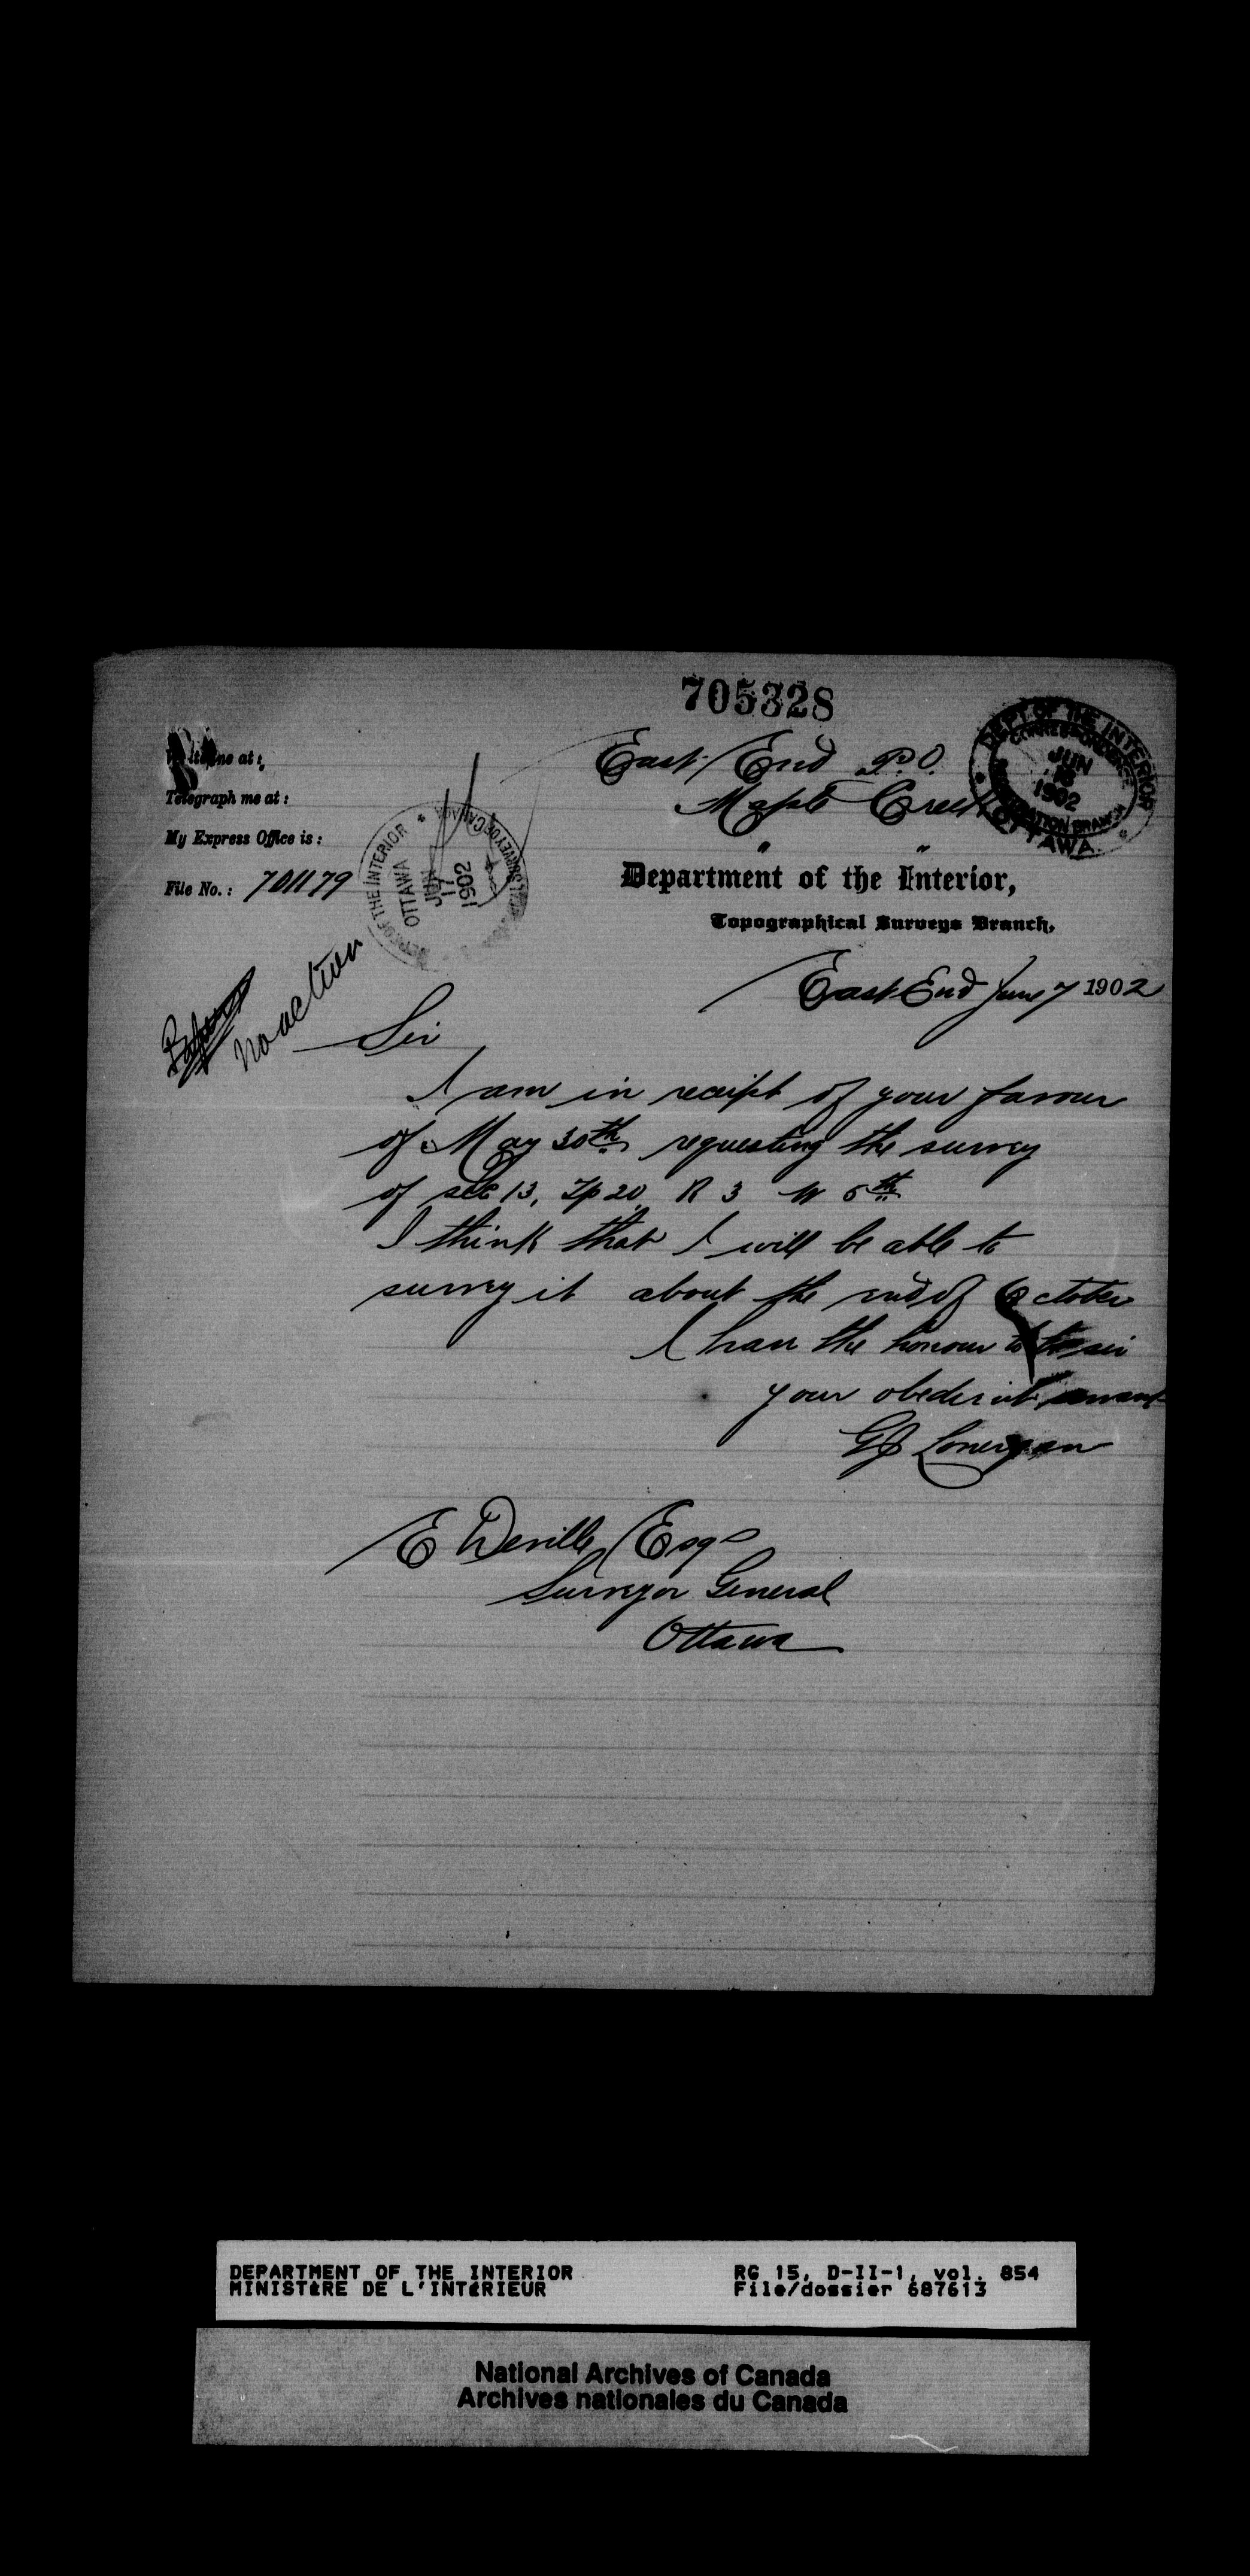 705328
East End P.O.
Maple Creek
Write me at:
Telegraph me at:
My Express Office is:
File No.: 701179
DEPT OF THE INTERIOR
CORRESPONDENCE
JUN
1902
REGISTRATION BRANCH
OTTAWA
OF THE INTERIOR
OTTAWA
JUN
1902
SURVEY OF CANADA
Department of the Interior,
Topographical Surveys Branch,
East End June 7 1902
No action
Sir
I am in receipt of your favour
of May 30th requesting the survey
of sec 13, Tp 20 R 3 W 5th
I think that I will be able to
survey it about the end of October
I have the honour to be sir
your obedient servant
GJ Lonergan
E Deville Esq
Surveyor General
Ottawa
DEPARTMENT OF THE INTERIOR
MINISTÈRE DE L'INTÉRIEUR
RG 15, D-II-1, vol. 854
File/dossier 687613
National Archives of Canada
Archives nationales du Canada